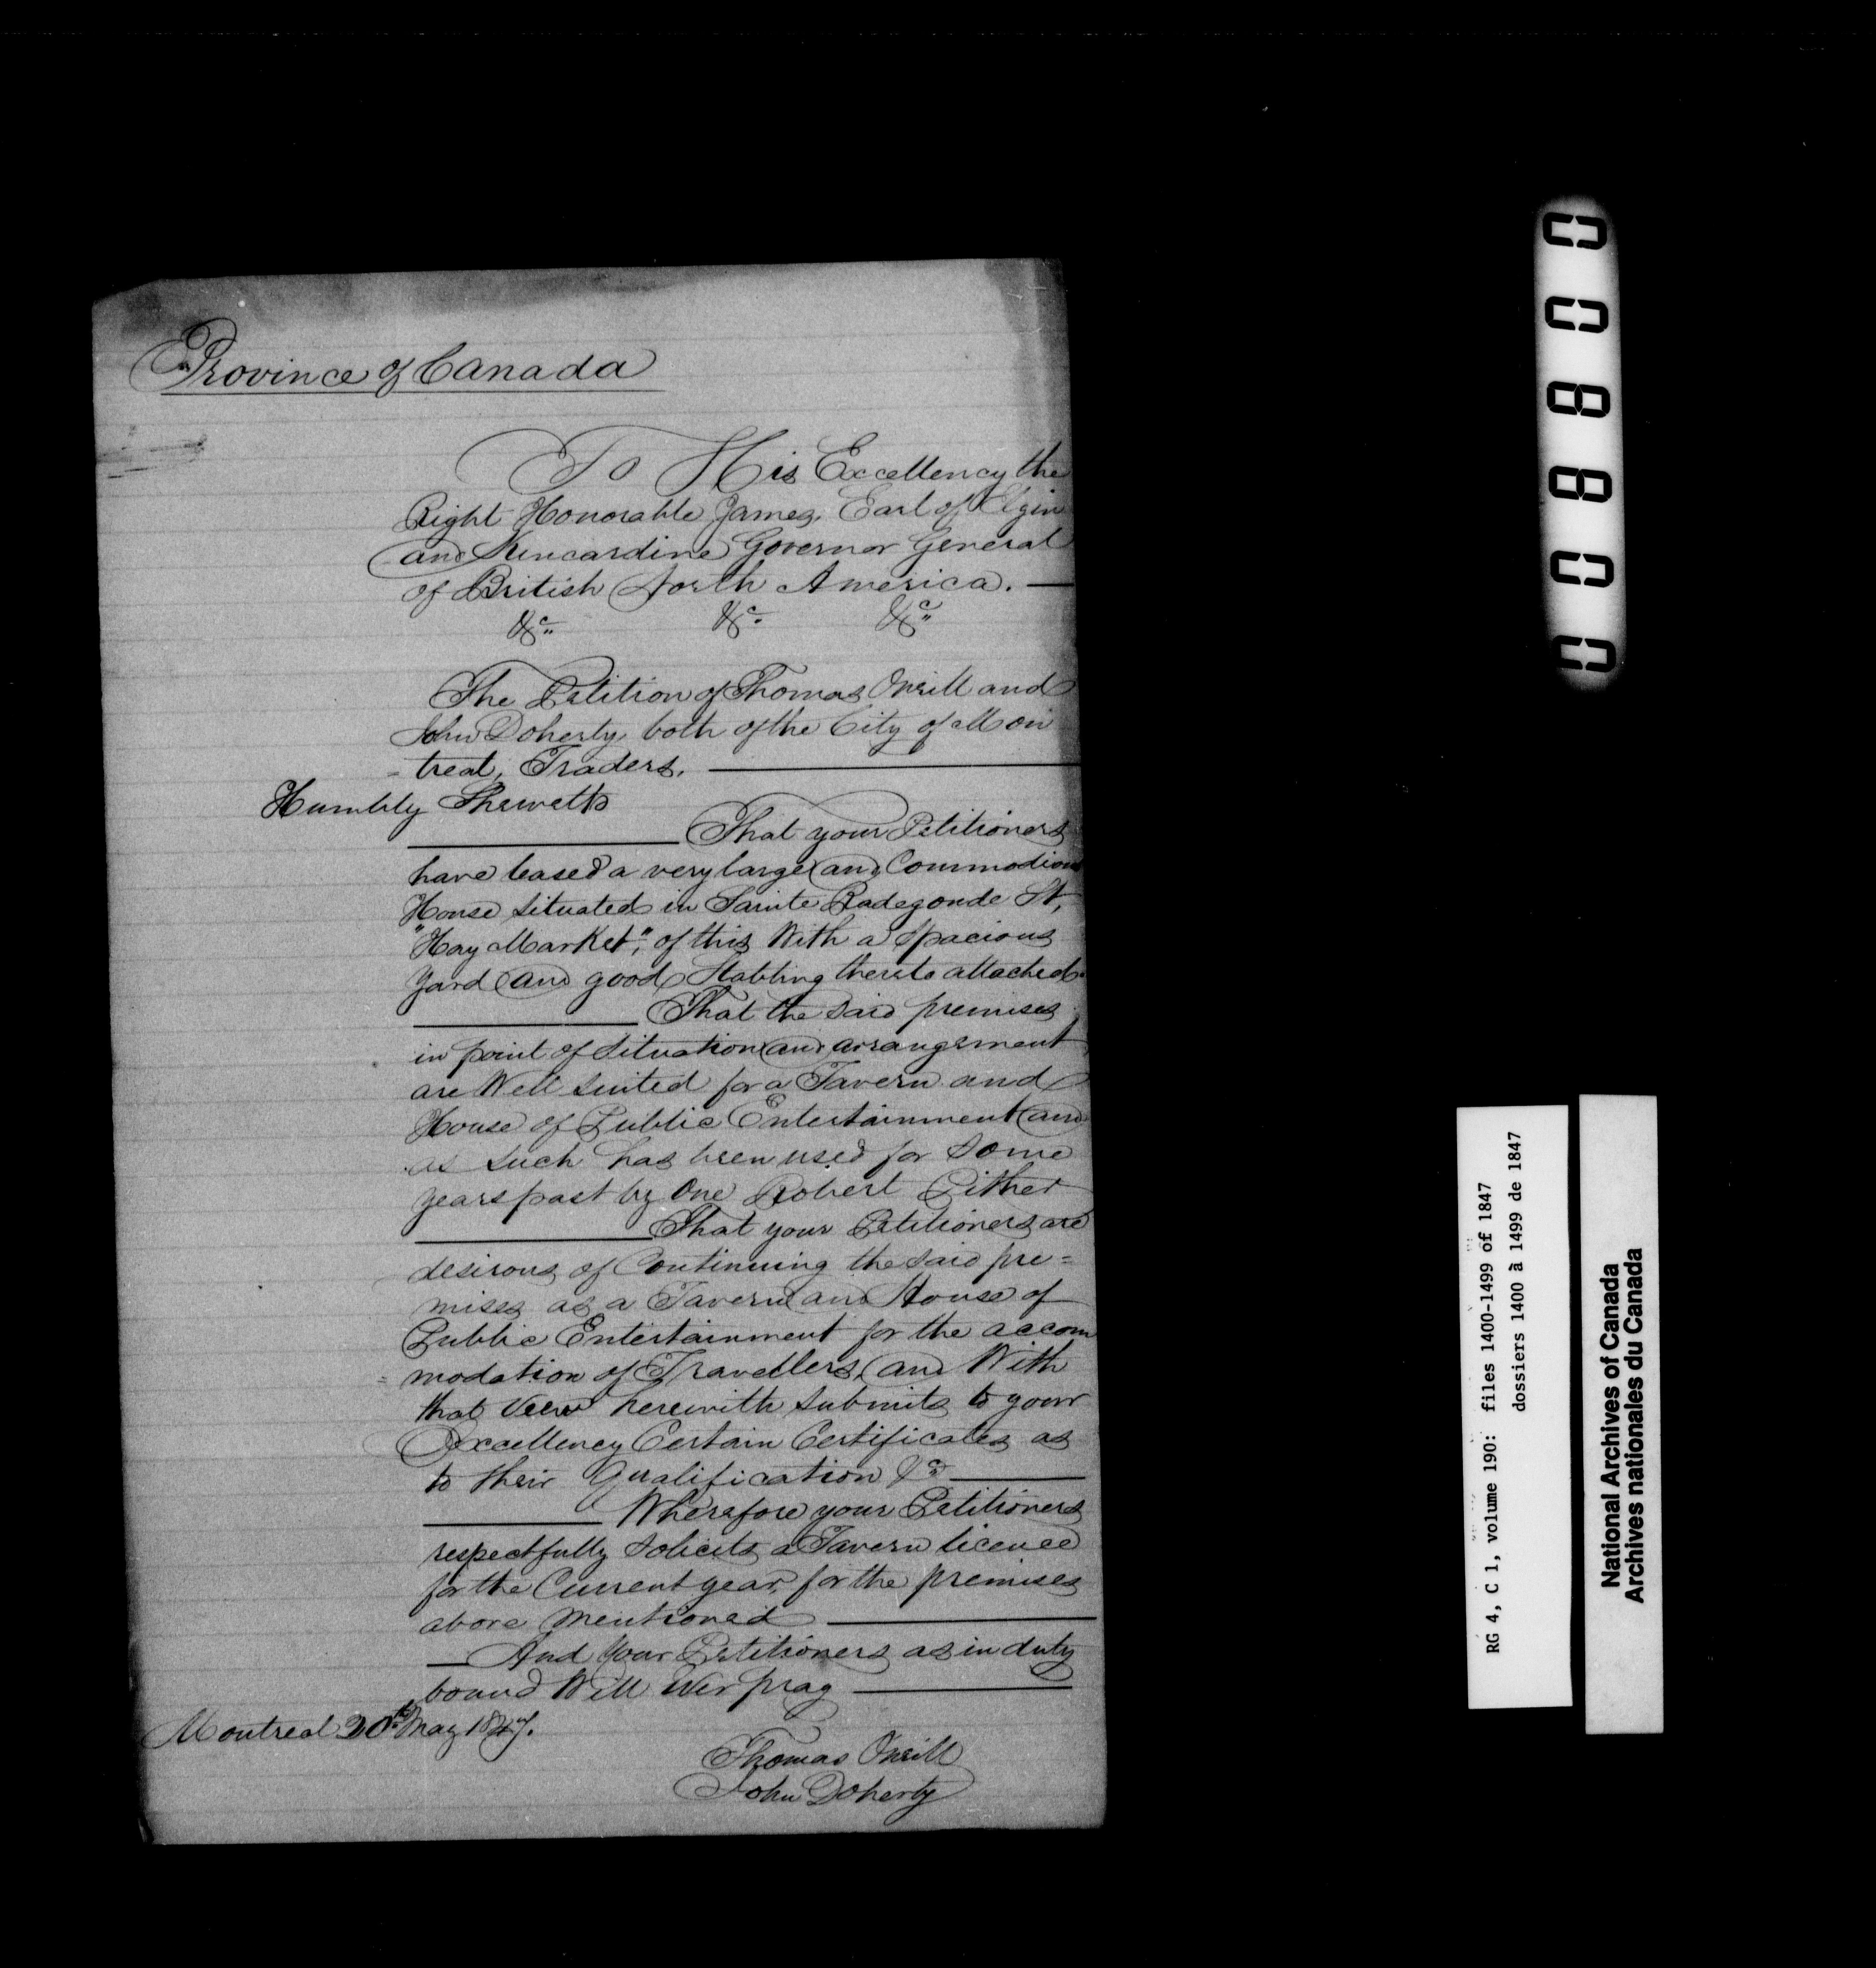 Province of Canada
To His Excellency the
Right Honorable James, Earl of Elgin
and Kincardine Governor General
of British North America. —
&c. &c. &c.
The Petition of Thomas Oneill and
John Doherty, both of the City of Mon
treal, Traders.
Humbly Sheweth
That your Petitioners
have leased a very large and Commodious
House situated in Sainte Radegonde St,
"Hay Market", of this With a Spacious
Yard and good Stabling thereto attached.
That the said premises
in point of situation and arrangement
are Well suited for a Tavern and
House of Public Entertainment and
as such has been used for some
years past by One Robert
That your Petitioners are
desirous of Continuing the said pre=
mises as a Tavern and House of
Public Entertainment for the accom
= modation of Travellers, and With
that View herewith submits to your
Excellency Certain Certificates as
to their Qualification &c
Wherefore your Petitioners
respectfully Solicits a Tavern licence
for the Current year, for the premises
above mentioned
And Your Petitioners as in duty
bound Will Ever pray
Montreal 20th May 1847.
Thomas Oneill
John Doherty
008800
RG 4, C 1, volume 190: files 1400-1499 of 1847
dossiers 1400 à 1499 de 1847
National Archives of Canada
Archives nationales du Canada